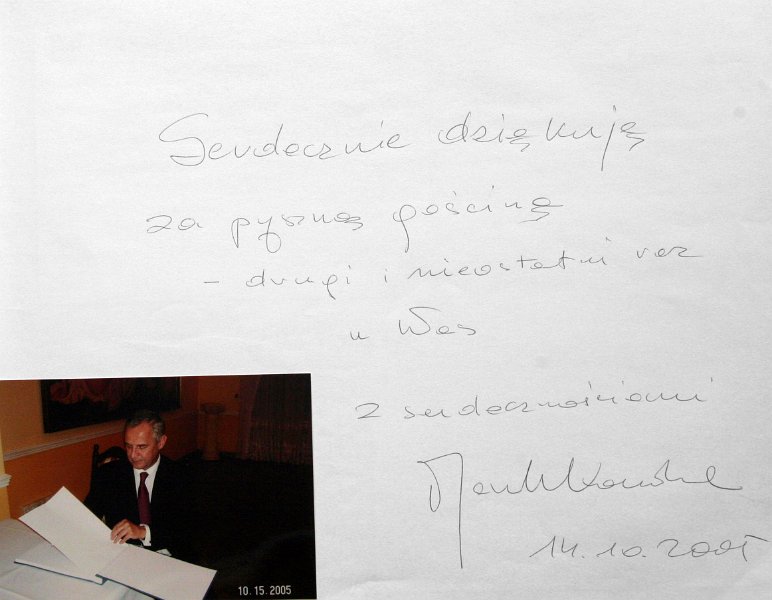 Serdecznie dziękuję
za pyszną gościnę
- drugi i nieostatni raz
u Was
z serdecznościami
14.10.2005
10.15.2005